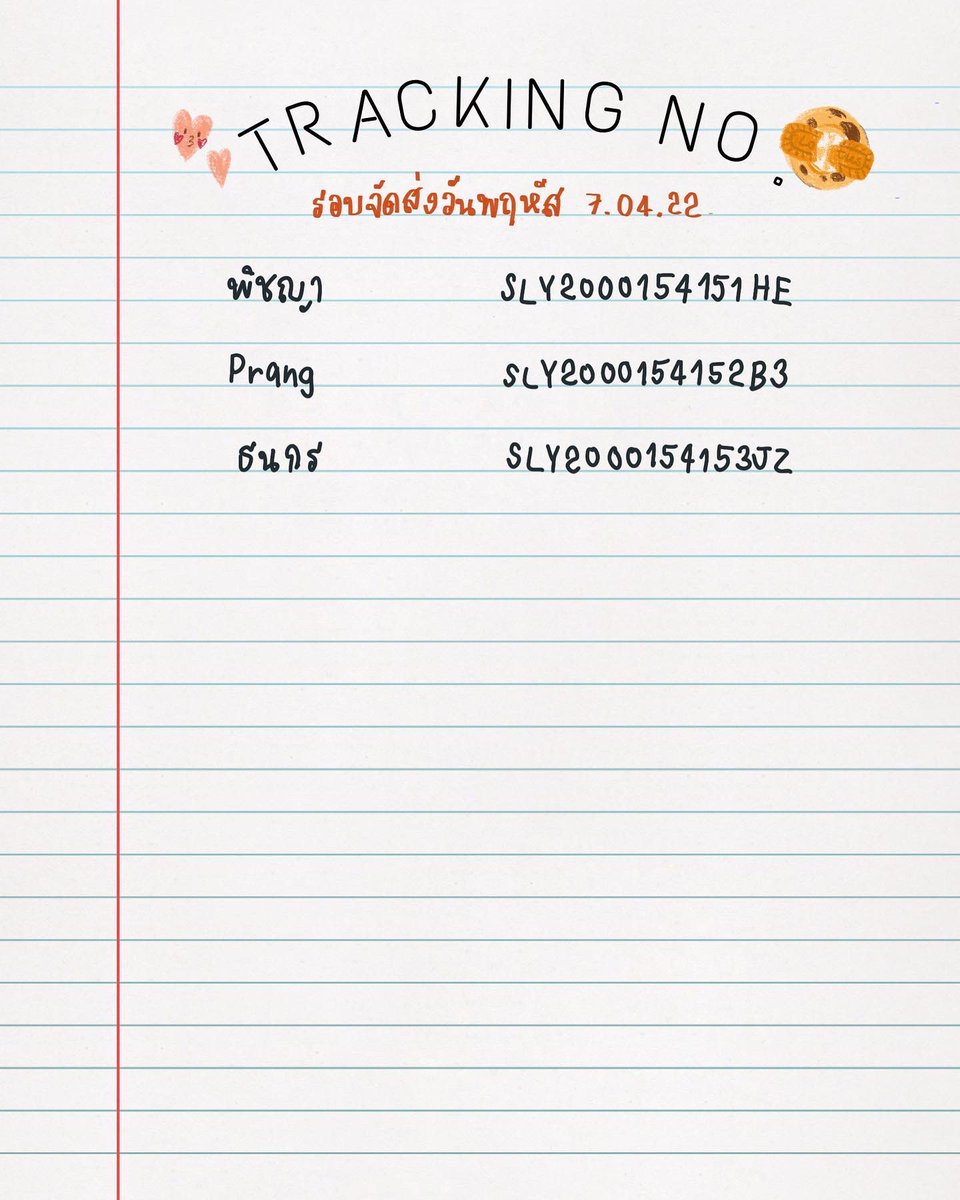 TRACKING NO.
รอบจัดส่งวันพฤหัส 7.04.22
พิชญา SLY2000154151HE
Prang SLY2000154152B3
ธนกร SLY2000154153JZ